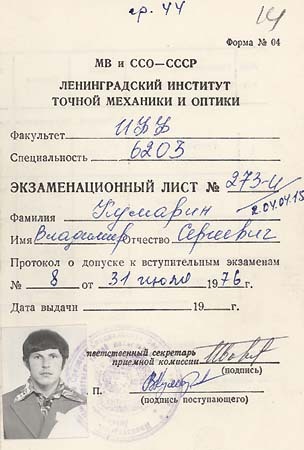 гр. 44
14
Форма № 04
МВ и ССО—СССР
ЛЕНИНГРАДСКИЙ ИНСТИТУТ
ТОЧНОЙ МЕХАНИКИ И ОПТИКИ
Факультет
Специальность 6203
ЭКЗАМЕНАЦИОННЫЙ ЛИСТ № 273-и
2.04.04.15
Фамилия Кумарин
Имя Владимир Отчество Сергеевич
Протокол о допуске к вступительным экзаменам
№ 8 от 31 июля 1976 г.
Дата выдачи 19 г.
ответственный секретарь
приемной комиссии
(подпись)
П.
(подпись поступающего)